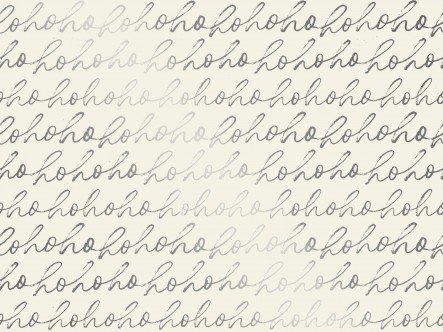 hohohohohohohohohohohoho
hohohohohohohohohohohoho
hohohohohohohohohohohoho
hohohohohohohohohohohoho
hohohohohohohohohohohoho
hohohohohohohohohohohoho
hohohohohohohohohohohoho
hohohohohohohohohohohoho
hohohohohohohohohohohoho